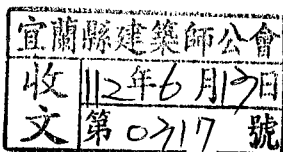 宜蘭縣建築師公會
收文
112年6月13日
第0317號